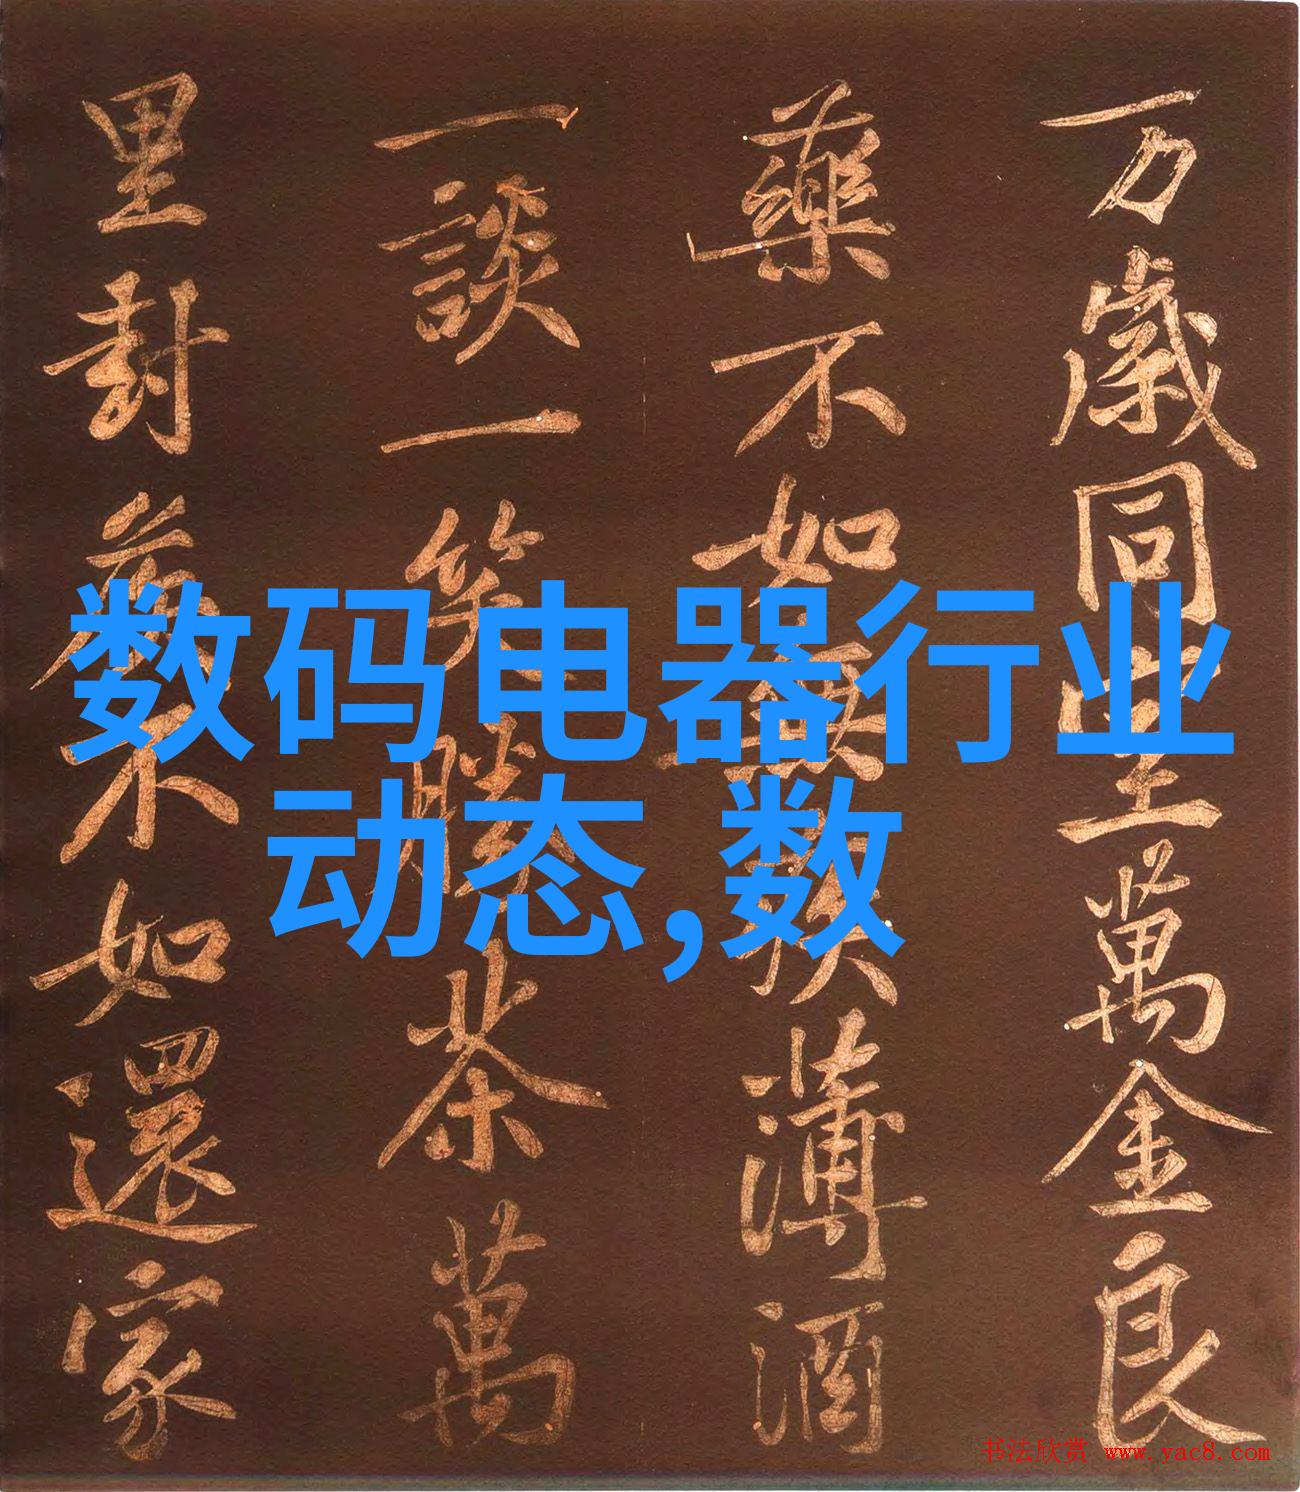 万歲同坐萬金良
藥不如無疾薄酒
一談一笑勝茶萬
里封侯不如還家
数码电器行业
动态,数
书法欣赏 www.yac8.com